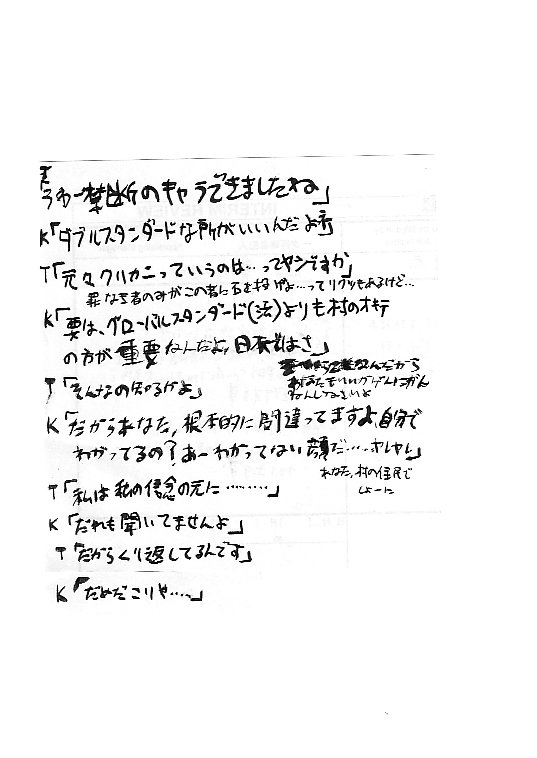 禁断のキャラできましたね」
K「ダブルスタンダードな所がいいんだよ
T「元々クリカニっていうのは…ってヤツですか」
罪なき者のみがこの者に石を投げよ…ってリクツもあるけど…
K「要は、グローバルスタンダード(法)よりも村のオキテ
の方が重要なんだよ、日本ではさ」
T「そんなの知るかよ」
なんだから
あなたもいいかげんにかん
ねんしなさいよ
K「だからあなた、根本的に間違ってますよ、自分で
わかってるの?あーわかってない顔だ……ヤレヤレ」
あなた、村の住民で
しょーに
T「私は私の信念の元に………」
K「だれも聞いてませんよ」
T「だからくり返してるんです」
K「だめだこりゃ……」